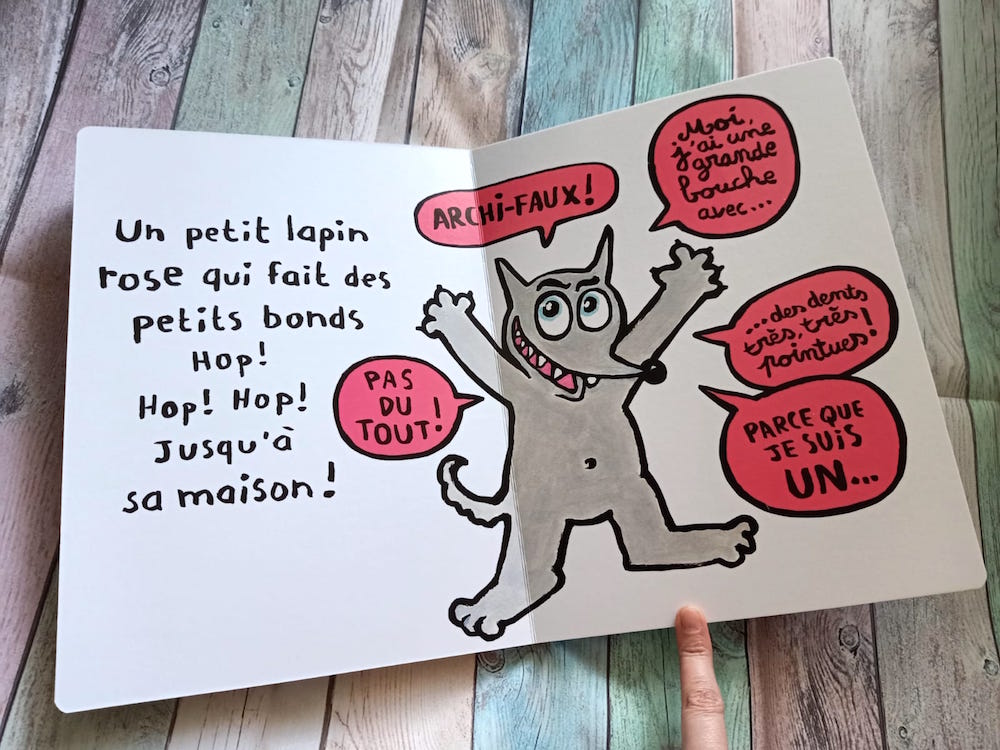 Un petit lapin
rose qui fait des
petits bonds
Hop!
Hop! Hop!
Jusqu'à
sa maison!
ARCHI-FAUX!
PAS
DU
TOUT!
Moi,
j'ai une
grande
bouche
avec...
...des dents
très, très
pointues!
PARCE QUE
JE SUIS
UN...